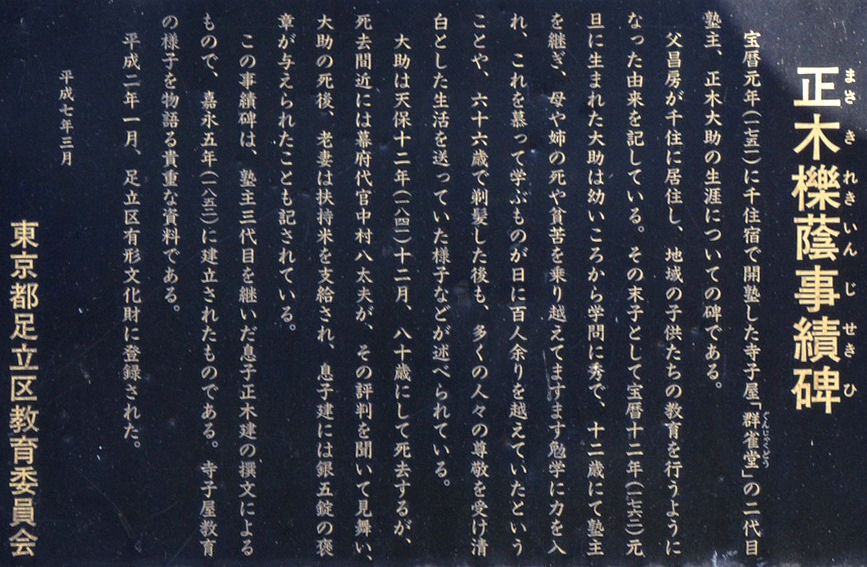 正木櫟蔭事績碑
まさきれきいんじせきひ
宝暦元年(一七五一)に千住宿で開塾した寺子屋「群雀堂」の二代目
ぐんじゃくどう
塾主、正木大助の生涯についての碑である。
父昌房が千住に居住し、地域の子供たちの教育を行うように
なった由来を記している。その末子として宝暦十二年(一七六二)元
旦に生まれた大助は幼いころから学問に秀で、十二歳にて塾主
を継ぎ、母や姉の死や貧苦を乗り越えてますます勉学に力を入
れ、これを慕って学ぶものが日に百人余りを越えていたという
ことや、六十六歳で剃髪した後も、多くの人々の尊敬を受け清
白とした生活を送っていた様子などが述べられている。
大助は天保十二年(一八四一)十二月、八十歳にして死去するが、
死去間近には幕府代官中村八太夫が、その評判を聞いて見舞い、
大助の死後、老妻は扶持米を支給され、息子建には銀五錠の褒
章が与えられたことも記されている。
この事績碑は、塾主三代目を継いだ息子正木建の撰文による
もので、嘉永五年(一八五二)に建立されたものである。寺子屋教育
の様子を物語る貴重な資料である。
平成二年一月、足立区有形文化財に登録された。
平成七年三月
東京都足立区教育委員会